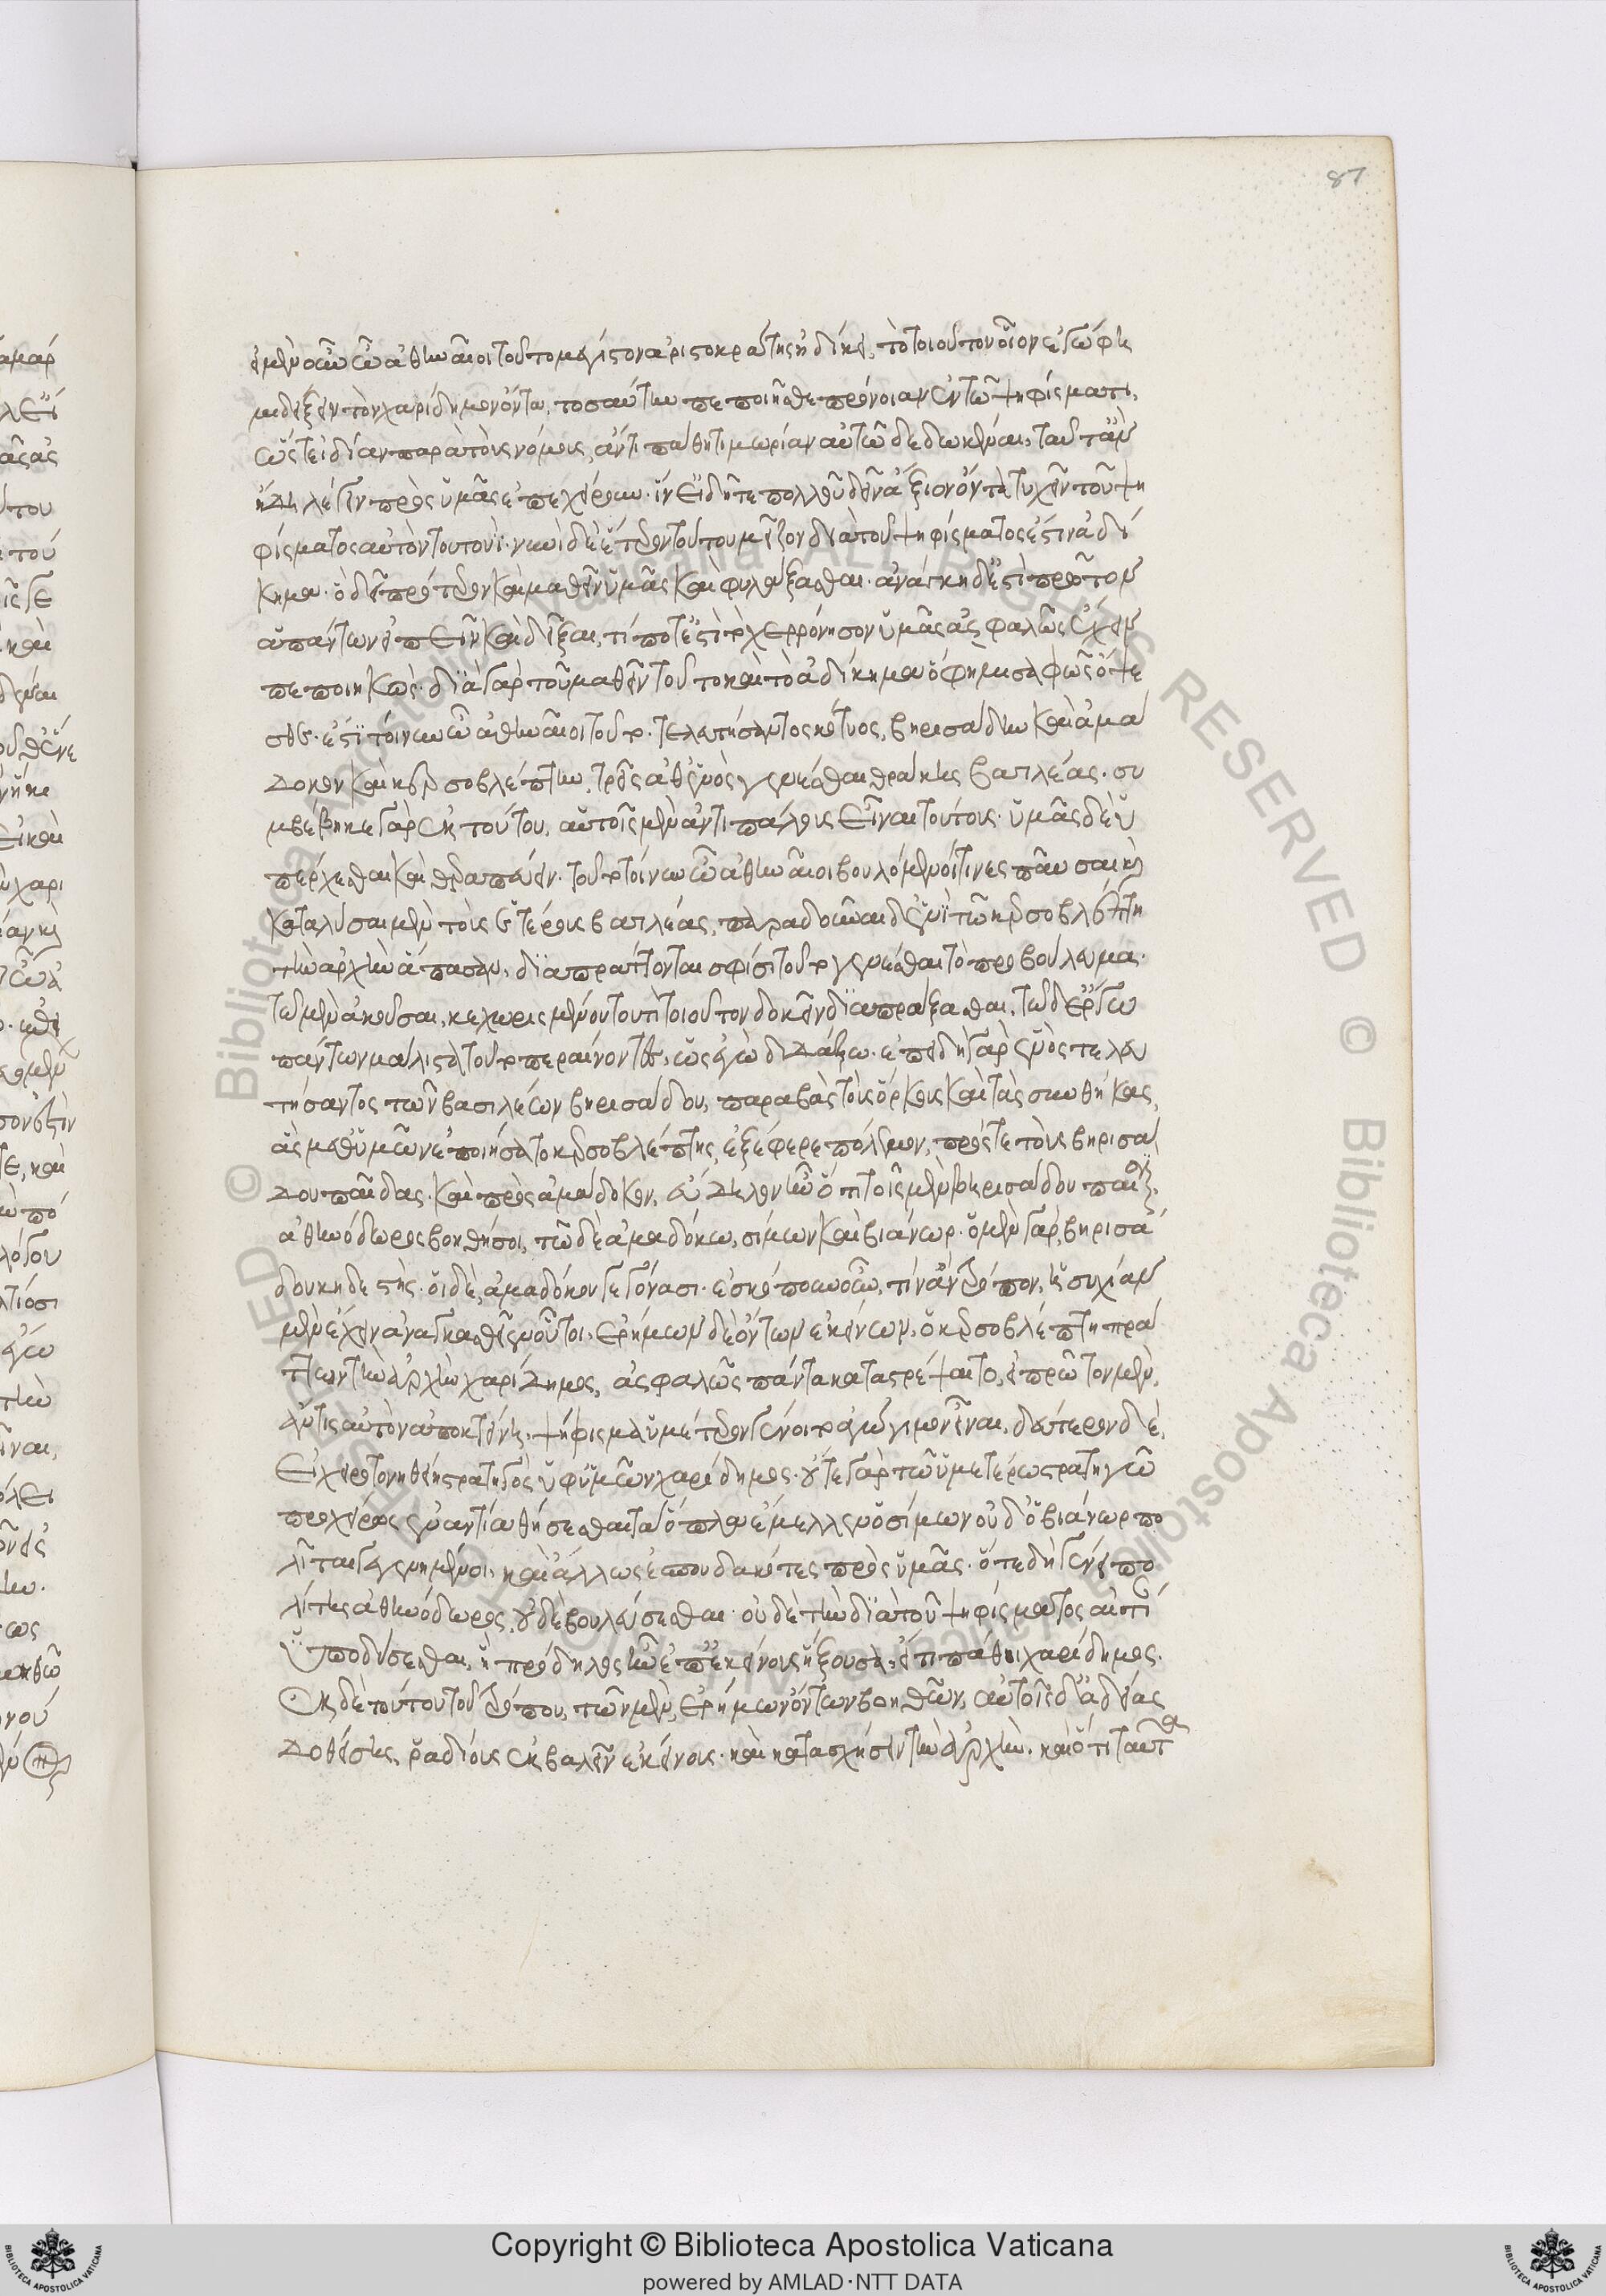 87
εἰ μὲν οὖν ὦ ἀθηναῖοι τοῦτο μάλιστον ἀριστοκράτης ἠδίκει, τὸ τοιοῦτον οἷον ἐγώ φημι
δείξειν τὸν χαρίδημον ὄντα, τοσαύτην πεποιῆσθαι πρόνοιαν ἐν τῶ ψηφίσματι,
ὥστε ἰδίαν παρὰ τοὺς νόμους, ἄν τι πάθη τιμωρίαν αὐτῶ δεδωκέναι, ταῦτ' ἂν
ἤδη λέγειν πρὸς ὑμᾶς ἐπεχείρουν. ἵν' εἰδῆτε πολλοῦ δεῖν ἄξιον ὄντα τυχεῖν τοῦ ψη
φίσματος αὐτὸν τουτουΐ. νυνὶ δὲ ἕτερον τούτου μεῖζον διὰ τοῦ ψηφίσματος ἐστιν ἀδί
κημα. ὃ δεῖ πρότερον καὶ μαθεῖν ὑμᾶς καὶ φυλάξασθαι. ἀνάγκη δ' ἐστὶ πρῶτον
ἁπάντων εἰπεῖν καὶ δεῖξαι, τί ποτ' ἐστὶ τὸ χερρόνησον ὑμᾶς ἀσφαλῶς ἔχειν
πεποιηκώς. διὰ γὰρ τοῦ μαθεῖν τοῦτο καὶ τὸ ἀδίκημα ὃ φημι σαφῶς ὄψε
σθε. ἐστὶ τοίνυν ὦ ἀθηναῖοι τοῦτο. τελευτήσαντος κότυος, βηρισάδην καὶ ἀμά
δοκον καὶ κερσοβλέπτην, τρεῖς ἀνθ' ἑνὸς γενέσθαι θράκης βασιλέας. συ
μβέβηκε γὰρ ἐκ τούτου, αὑτοῖς μὲν ἀντιπάλους εἶναι τούτοις. ὑμᾶς δὲ ὑ
πέρχεσθαι καὶ θεραπεύειν. τοῦτο τοίνυν ὦ ἀθηναῖοι βουλόμενοί τινες παῦσαι καὶ
καταλῦσαι μὲν τοὺς ἑτέρους βασιλέας, παραδοῦναι δ' ἑνὶ τῶ κερσοβλέπτη
τὴν ἀρχὴν ἅπασαν, διαπράττονται σφίσι τοῦτο γενέσθαι τὸ προβούλευμα.
τῶ μὲν ἀκοῦσαι, κεχωρισμένον τοῦ τι τοιοῦτον δοκεῖν διαπράξασθαι. τῶ δ' ἔργω
πάντων μάλιστα τοῦτο περαίνοντες, ὡς ἐγὼ διδάξω. ἐπειδὴ γὰρ ἑνὸς τελευ
τήσαντος τῶν βασιλέων βηρισάδου, παραβὰς τοὺς ὅρκους καὶ τὰς συνθήκας,
ἃς μεθ' ὑμῶν ἐποιήσατο κερσοβλέπτης, ἐξέφερε πόλεμον, πρός τε τοὺς βηρισά
δου παῖδας. καὶ πρὸς ἀμάδοκον, εὔδηλον ἦν ὅτι τοῖς μὲν βηρισάδου παισὶν
ἀθηνόδωρος βοηθήσοι, τῶ δὲ ἀμαδόκω, σίμων καὶ βιάνωρ. ὁ μὲν γὰρ βηρισά
δου κηδεστής. οἱ δὲ, ἀμαδόκου γεγόνασι. ἐσκόπουν οὖν, τίν' ἂν τρόπον, ἡσυχίαν
μὲν ἔχειν ἀναγκασθεῖεν οὗτοι, ἐρήμων δὲ ὄντων ἐκείνων, ὁ κερσοβλέπτη πράτ
των τὴν ἀρχὴν χαρίδημος, ἀσφαλῶς πάντα καταστρέψαιτο, εἰ πρῶτον μὲν,
ἄν τις αὐτὸν ἀποκτείνη, ψήφισμα ὑμέτερον γένοιτο ἀγώγιμον εἶναι, δεύτερον δὲ,
εἰ χειροτονηθείη στρατηγὸς ὑφ' ὑμῶν χαρίδημος. οὔτε γὰρ τῶ ὑμετέρω στρατηγῶ
προχείρως ἐναντία θήσεσθαι τὰ ὅπλα ἔμελλεν ὁ σίμων οὐδ' ὁ βιάνωρ πο
λῖται γεγενημένοι, καὶ ἄλλως ἐσπουδακότες πρὸς ὑμᾶς. ὅ τε δὴ γένει πο
λίτης ἀθηνόδωρος, οὐδὲ βουλεύσεσθαι. οὐδὲ τὴν διὰ τοῦ ψηφίσματος αἰτί
ὑποδύσεσθαι, ἣ πρόδηλος ἦν ἐπ' ἐκείνους ἥξουσα, εἴ τι πάθοι χαρίδημος.
ἐκ δὲ τούτου τοῦ τρόπου, τῶν μὲν, ἐρήμων ὄντων βοηθῶν, αὐτοῖς δ' ἀδείας
δοθείσης, ῥαδίως ἐκβαλεῖν ἐκείνους. καὶ κατασχήσειν τὴν ἀρχὴν. καὶ ὅτι ταῦτα
Copyright © Biblioteca Apostolica Vaticana
powered by AMLAD·NTT DATA